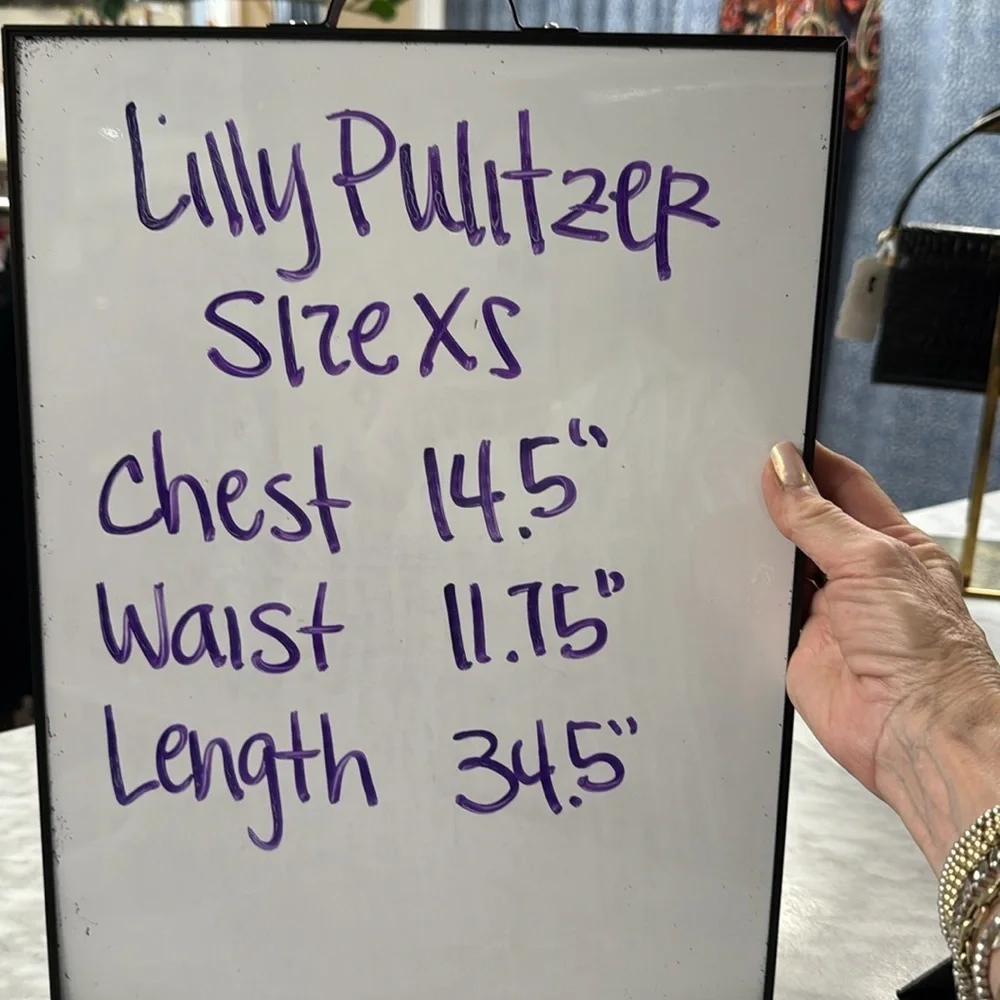 Lilly Pulitzer
Size XS
Chest 14.5"
Waist 11.75"
Length 34.5"